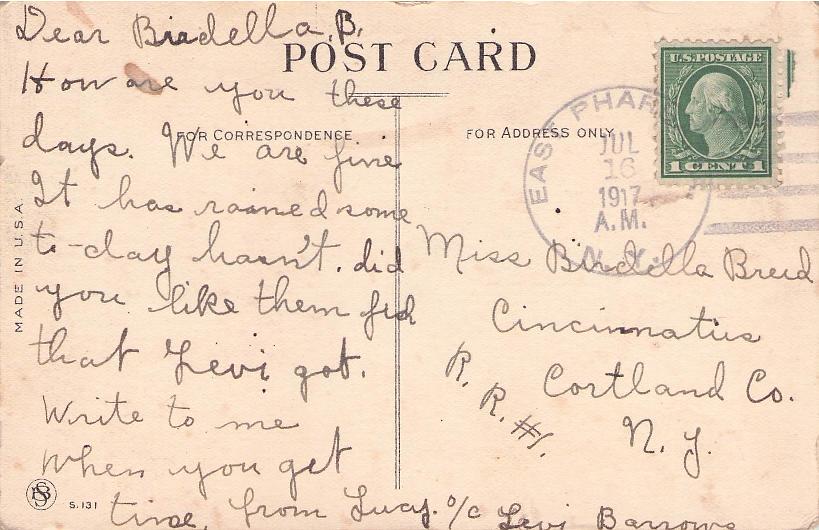 Dear Birdella, B.
POST CARD
How are you these
FOR CORRESPONDENCE
days. We are fine
It has rained some
to-day hasn't. did
you like them fish
that Levi got.
Write to me
when you get
time, from Lucy. c/o Levi Barrows
FOR ADDRESS ONLY
U.S. POSTAGE
1 CENT 1
EAST PHAR
JUL
16
1917
A.M.
N.Y.
Miss Birdella Breed
Cincinnatus
Cortland Co.
R. R. #1.
N. Y.
MADE IN U.S.A.
S. 131